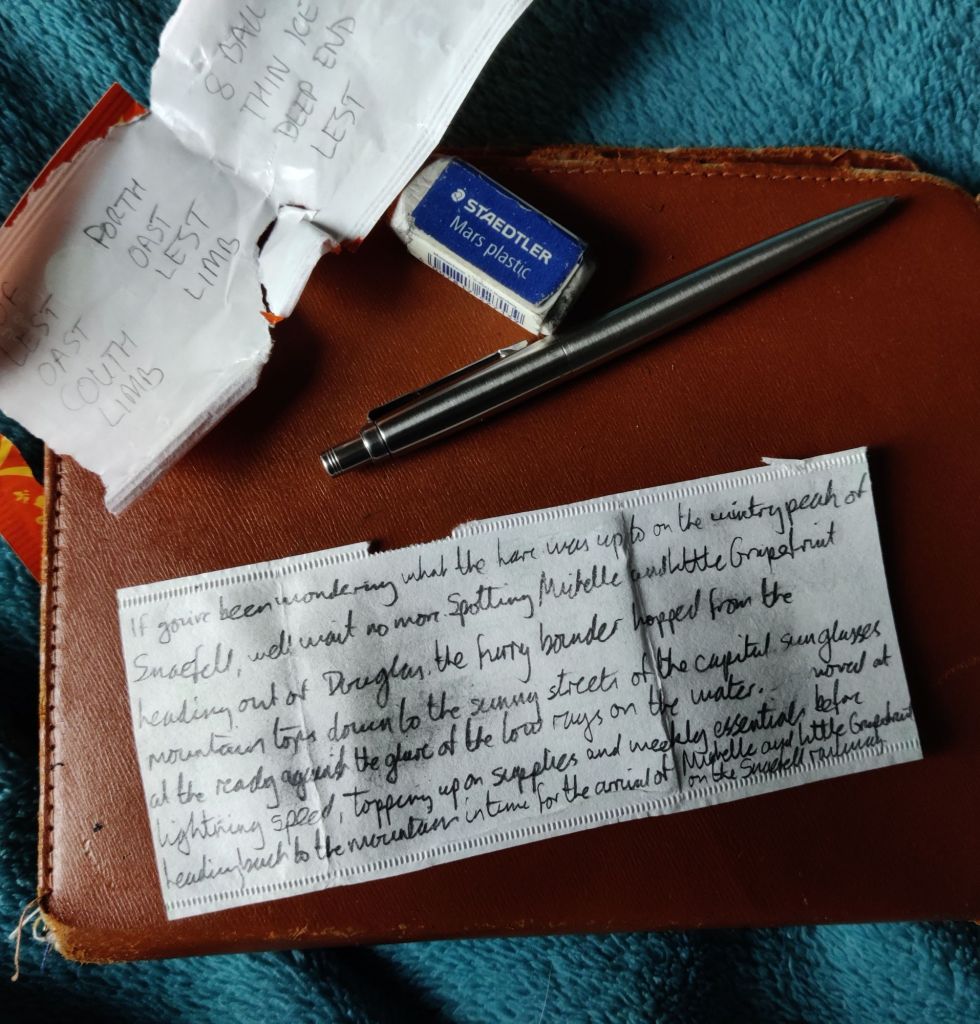 8 BALL
THIN ICE
DEEP END
LEST
PORTH
OAST
LEST
LIMB
LEST
OAST
COUTH
LIMB
STAEDTLER
Mars plastic
If you've been wondering what the hare was up to on the wintry peak of
Snaefell, well wait no more. Spotting Michelle and Little Grapefruit
heading out of Douglas, the furry bounder hopped from the
mountain tops down to the sunny streets of the capital sunglasses
at the ready against the glare of the low rays on the water. moved at
lightning speed, topping up on supplies and weekly essentials before
heading back to the mountain in time for the arrival of Michelle and Little Grapefruit
on the Snaefell railway